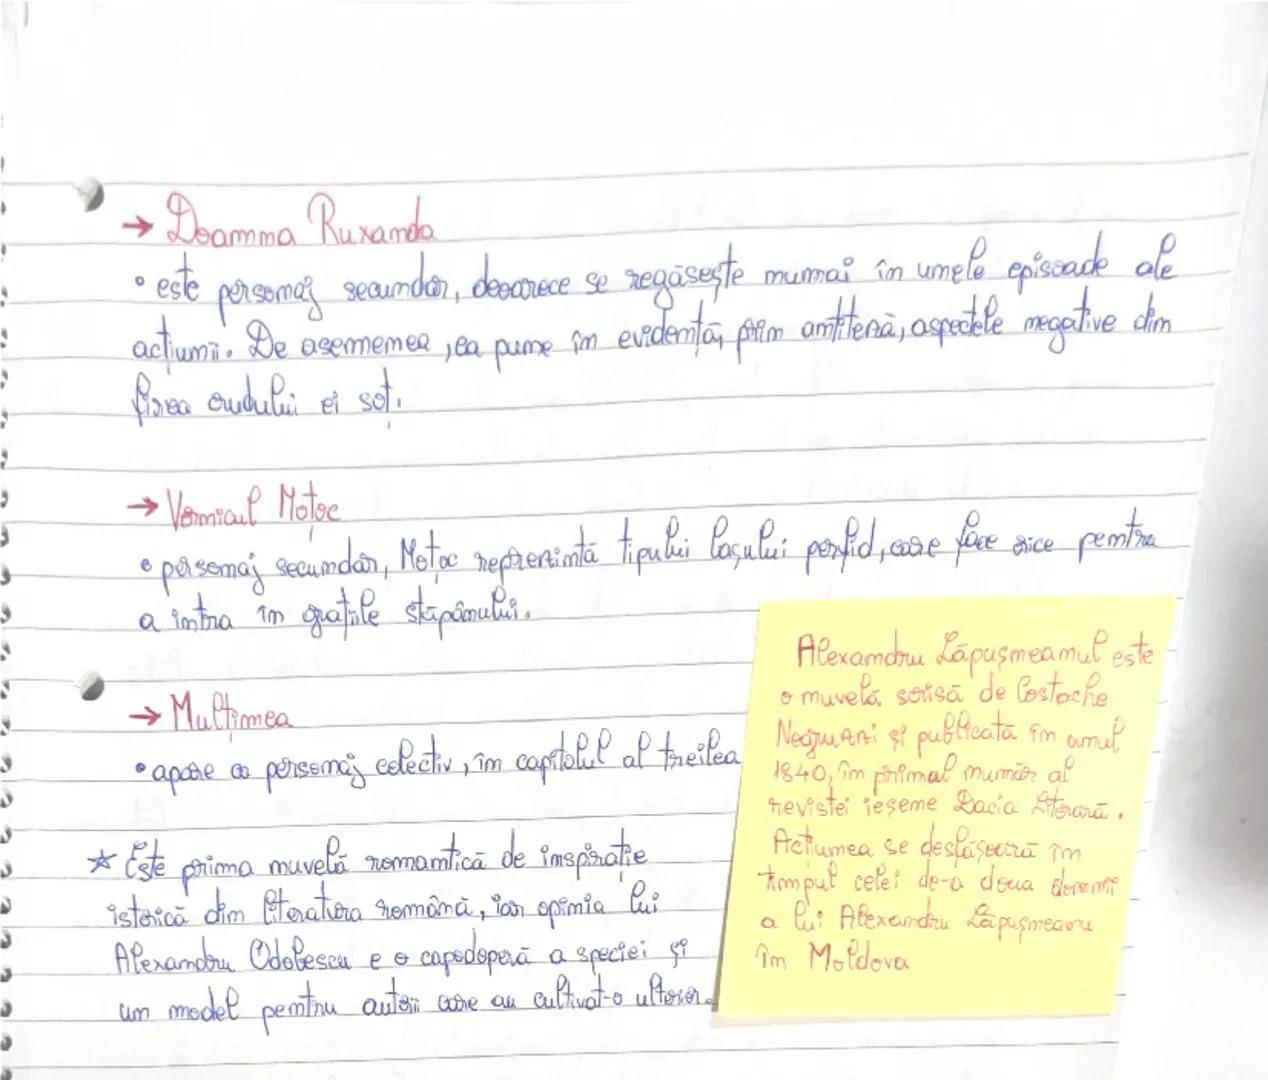 → Doamna Ruxanda
• este personaj secundar, deoarece se regăsește numai în unele episoade ale
acțiunii. De asemenea, ea pune în evidență, prin antiteză, aspectele negative din
firea crudului ei soț.
→ Vornicul Motoc
• personaj secundar, Motoc reprezintă tipului lașului perfid, care face orice pentru
a intra în grațiile stăpânului.
→ Mulțimea
• apare ca personaj colectiv, în capitolul al treilea
☆ Este prima nuvelă romantică de inspirație
istorică din literatura română, iar opinia lui
Alexandru Odobescu e o capodoperă a speciei și
un model pentru autorii care au cultivat-o ulterior.
Alexandru Lăpușneanul este
o nuvelă scrisă de Costache
Negruzzi și publicată în anul
1840, în primul număr al
revistei ieșene Dacia Literară.
Acțiunea se desfășoară în
timpul celei de-a doua domnii
a lui Alexandru Lăpușneanu
în Moldova